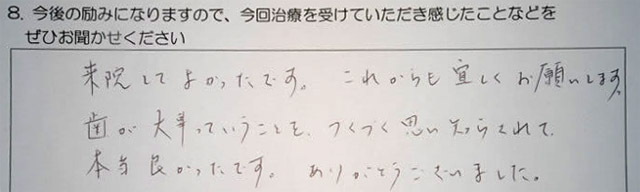 8. 今後の励みになりますので、今回治療を受けていただき感じたことなどを
ぜひお聞かせください
来院してよかったです。これからも宜しくお願いします。
歯が大事っていうことを、つくづく思い知らされて、
本当良かったです。ありがとうございました。